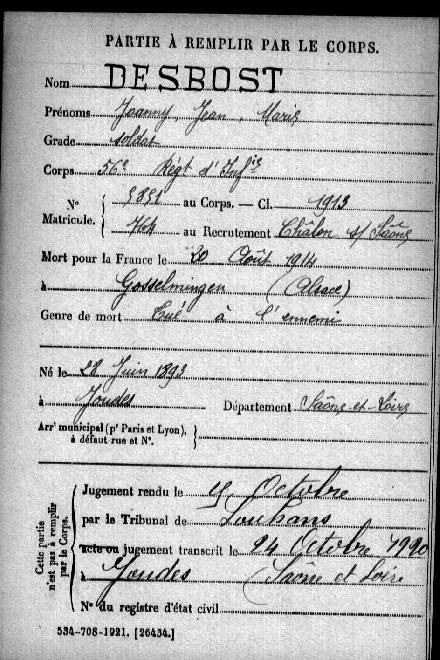 PARTIE À REMPLIR PAR LE CORPS.
Nom DESBOST
Prénoms Joanny, Jean, Marie
Grade soldat
Corps 56e Régt d'Infie
N° 5851 au Corps. — Cl. 1913
Matricule. 764 au Recrutement Châlon s/ Saône
Mort pour la France le 20 Août 1914
à Gosselmingen (Alsace)
Genre de mort Tué à l'ennemi
Né le 28 Juin 1893
à Joudes Département Saône-et-Loire
Arrt municipal (pr Paris et Lyon),
à défaut rue et N°.
Cette partie
n'est pas à remplir
par le Corps.
Jugement rendu le Octobre
par le Tribunal de Louhans
acte ou jugement transcrit le 24 Octobre 1920
à Joudes (Saône et Loire
N° du registre d'état civil
534-708-1921. [26434.]